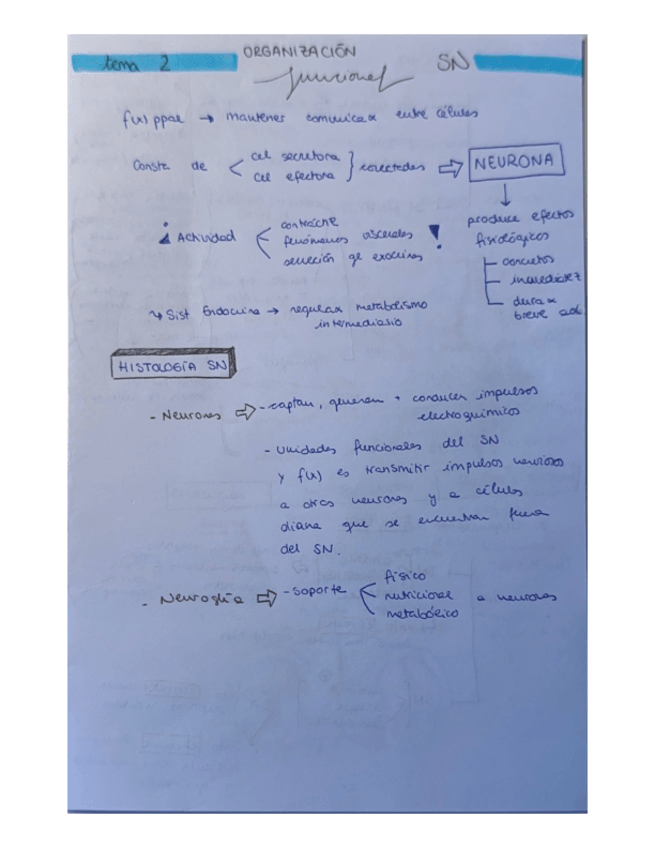 tema 2
ORGANIZACIÓN
funcional SN
f(x) ppal → mantener comunicac∝ entre células
Consta de < cel secretora
cel efectora } conectadas ⇨ NEURONA
↓
produce efectos
fisiológicos
concretos
inmediatez
durac∝
breve
Actividad < contráctil
fenómenos viscerales
secreción gl exocrinas !
↳ Sist Endocrino → regular metabolismo
intermediario
HISTOLOGÍA SN
- Neuronas ⇨ - captan, generan + conducen impulsos
electroquímicos
- Unidades funcionales del SN
y f(x) es transmitir impulsos nerviosos
a otras neuronas y a células
diana que se encuentran fuera
del SN.
- Neuroglía ⇨ - soporte < físico
nutricional a neuronas
metabólico